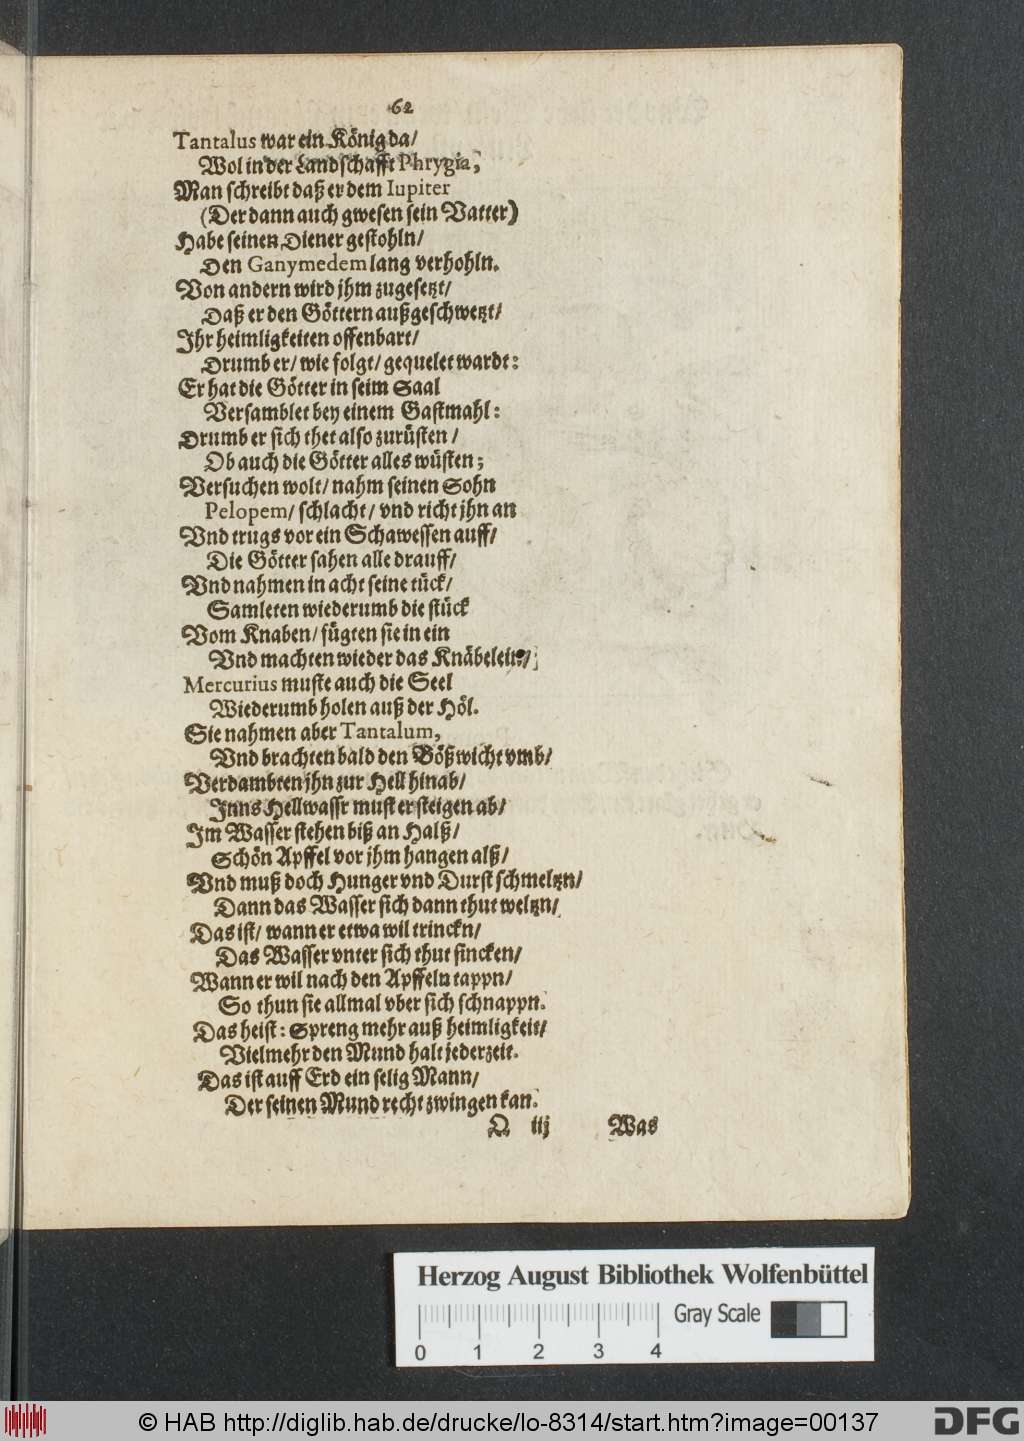 62
Tantalus war ein König da/
Wol in der Landschafft Phrygia,
Man schreibt daß er dem Iupiter
(Der dann auch gwesen sein Vatter)
Habe seinen Diener gestohln/
Den Ganymedem lang verhohln.
Von andern wird jhm zugesetzt/
Daß er den Göttern außgeschwetzt/
Ihr heimligkeiten offenbart/
Drumb er/ wie folgt/ gequelet wardt:
Er hat die Götter in seim Saal
Versamblet bey einem Gastmahl:
Drumb er sich thet also zurüsten/
Ob auch die Götter alles wüsten;
Versuchen wolt/ nahm seinen Sohn
Pelopem/ schlacht/ vnd richt jhn an
Vnd trugs vor ein Schawessen auff/
Die Götter sahen alle drauff/
Vnd nahmen in acht seine tück/
Samleten wiederumb die stück
Vom Knaben/ fügten sie in ein
Vnd machten wieder das Knäbelein/
Mercurius muste auch die Seel
Wiederumb holen auß der Höl.
Sie nahmen aber Tantalum,
Vnd brachten bald den Bößwicht vmb/
Verdambten jhn zur Hell hinab/
Inns Hellwassr must er steigen ab/
Im Wasser stehen biß an Halß/
Schön Apffel vor jhm hangen alß/
Vnd muß doch Hunger vnd Durst schmeltzn/
Dann das Wasser sich dann thut weltzn/
Das ist/ wann er etwa wil trinckn/
Das Wasser vnter sich thut sincken/
Wann er wil nach den Apffeln tappn/
So thun sie allmal vber sich schnappn.
Das heist: Spreng mehr auß heimligkeit/
Vielmehr den Mund halt jederzeit.
Das ist auff Erd ein selig Mann/
Der seinen Mund recht zwingen kan.
Q iij Was
Herzog August Bibliothek Wolfenbüttel
Gray Scale
0 1 2 3 4
© HAB http://diglib.hab.de/drucke/lo-8314/start.htm?image=00137
DFG